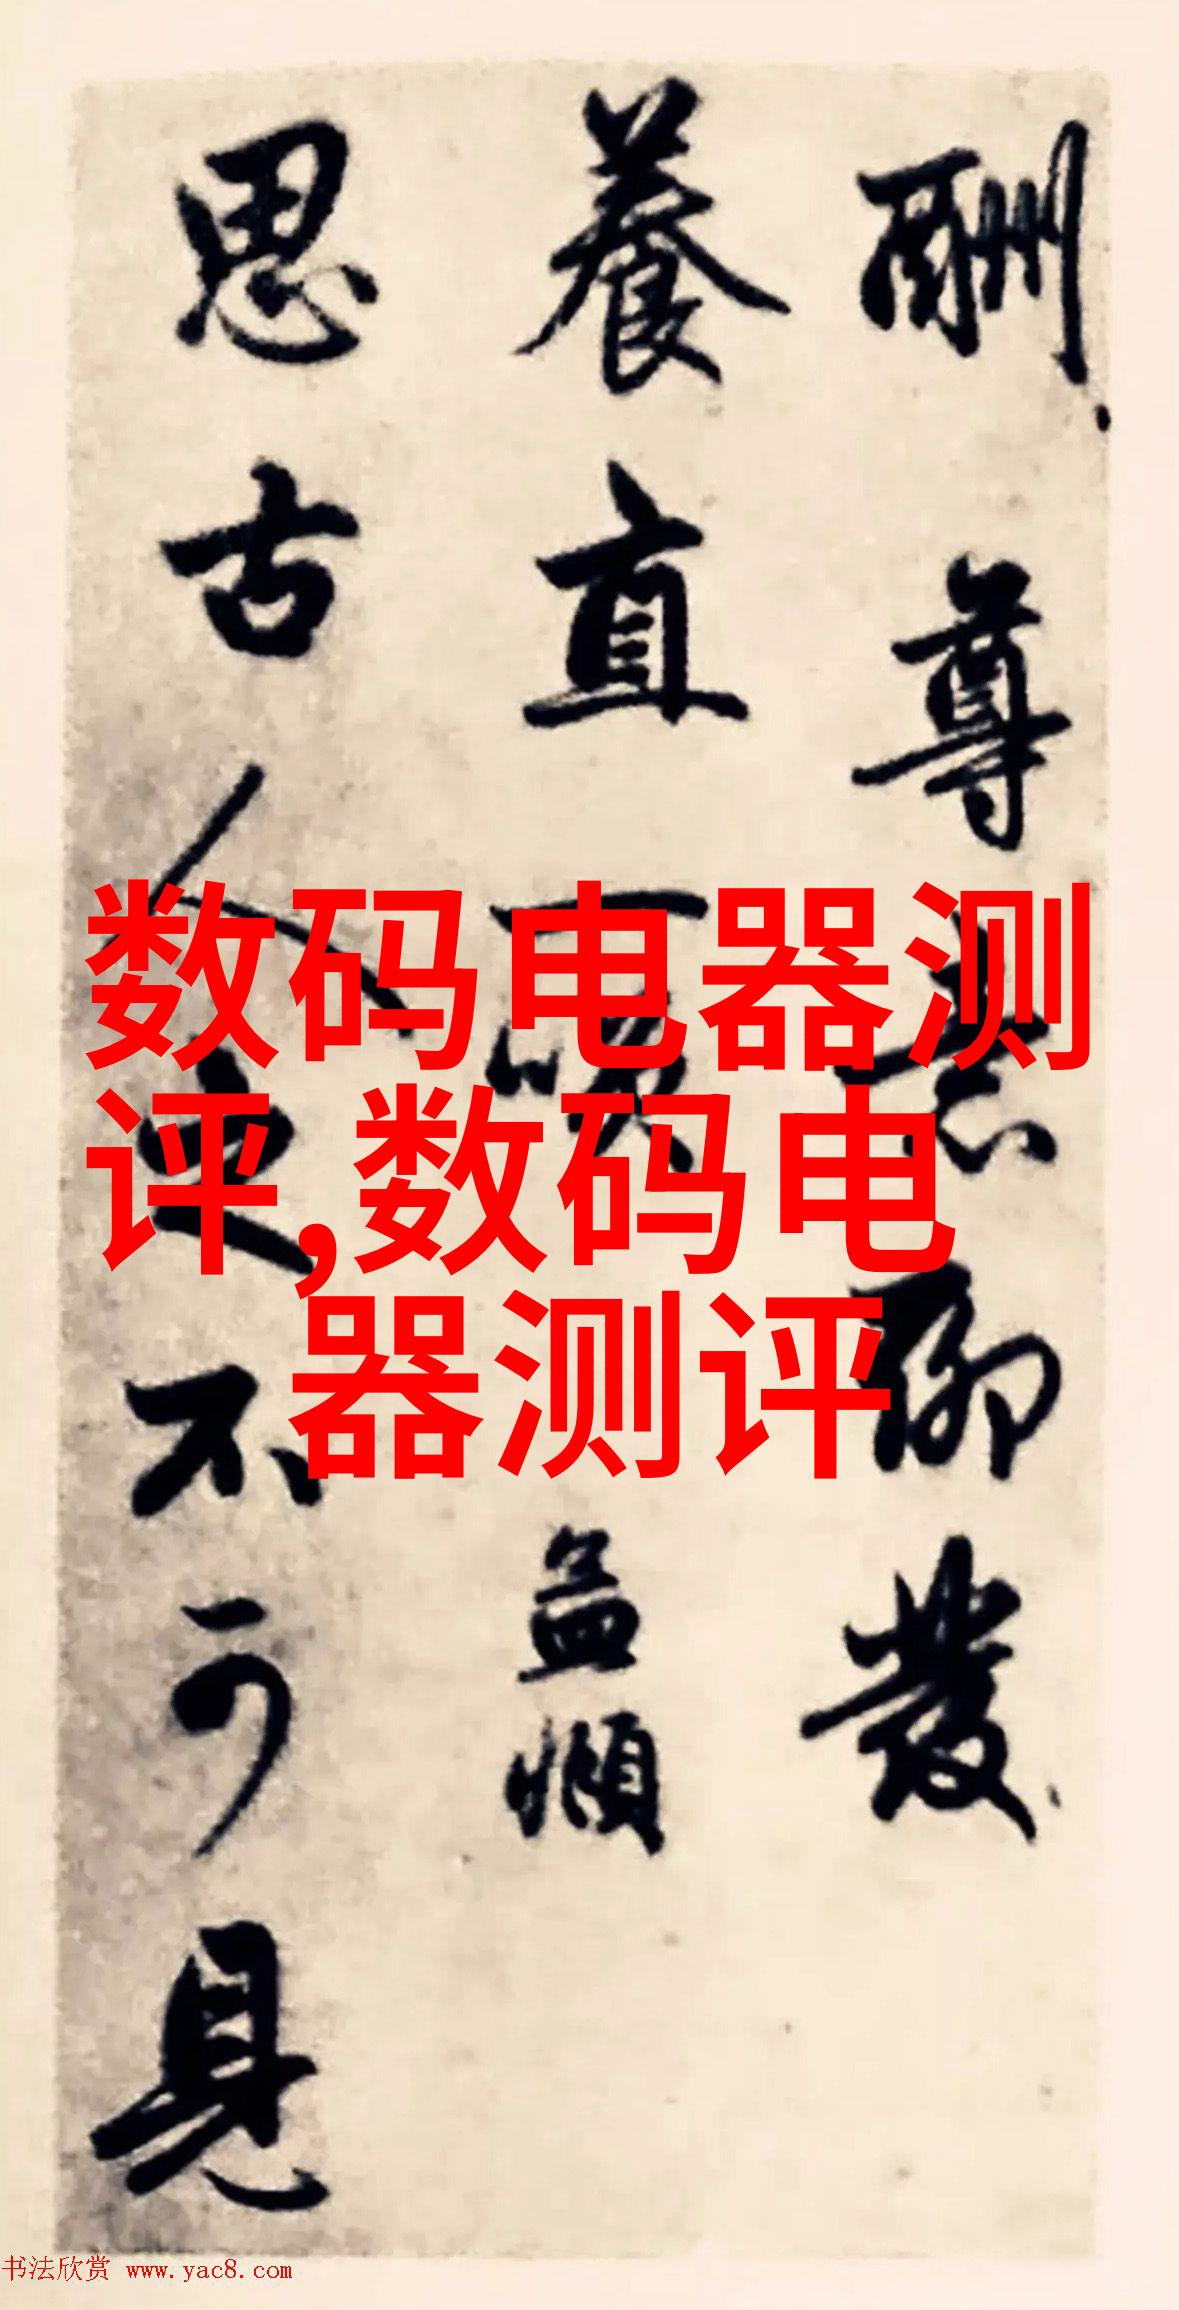 酬尊慈聊發
養直一嘆益煩
思古人之不可見
数码电器测
评,数码电
器测评
书法欣赏 www.yac8.com